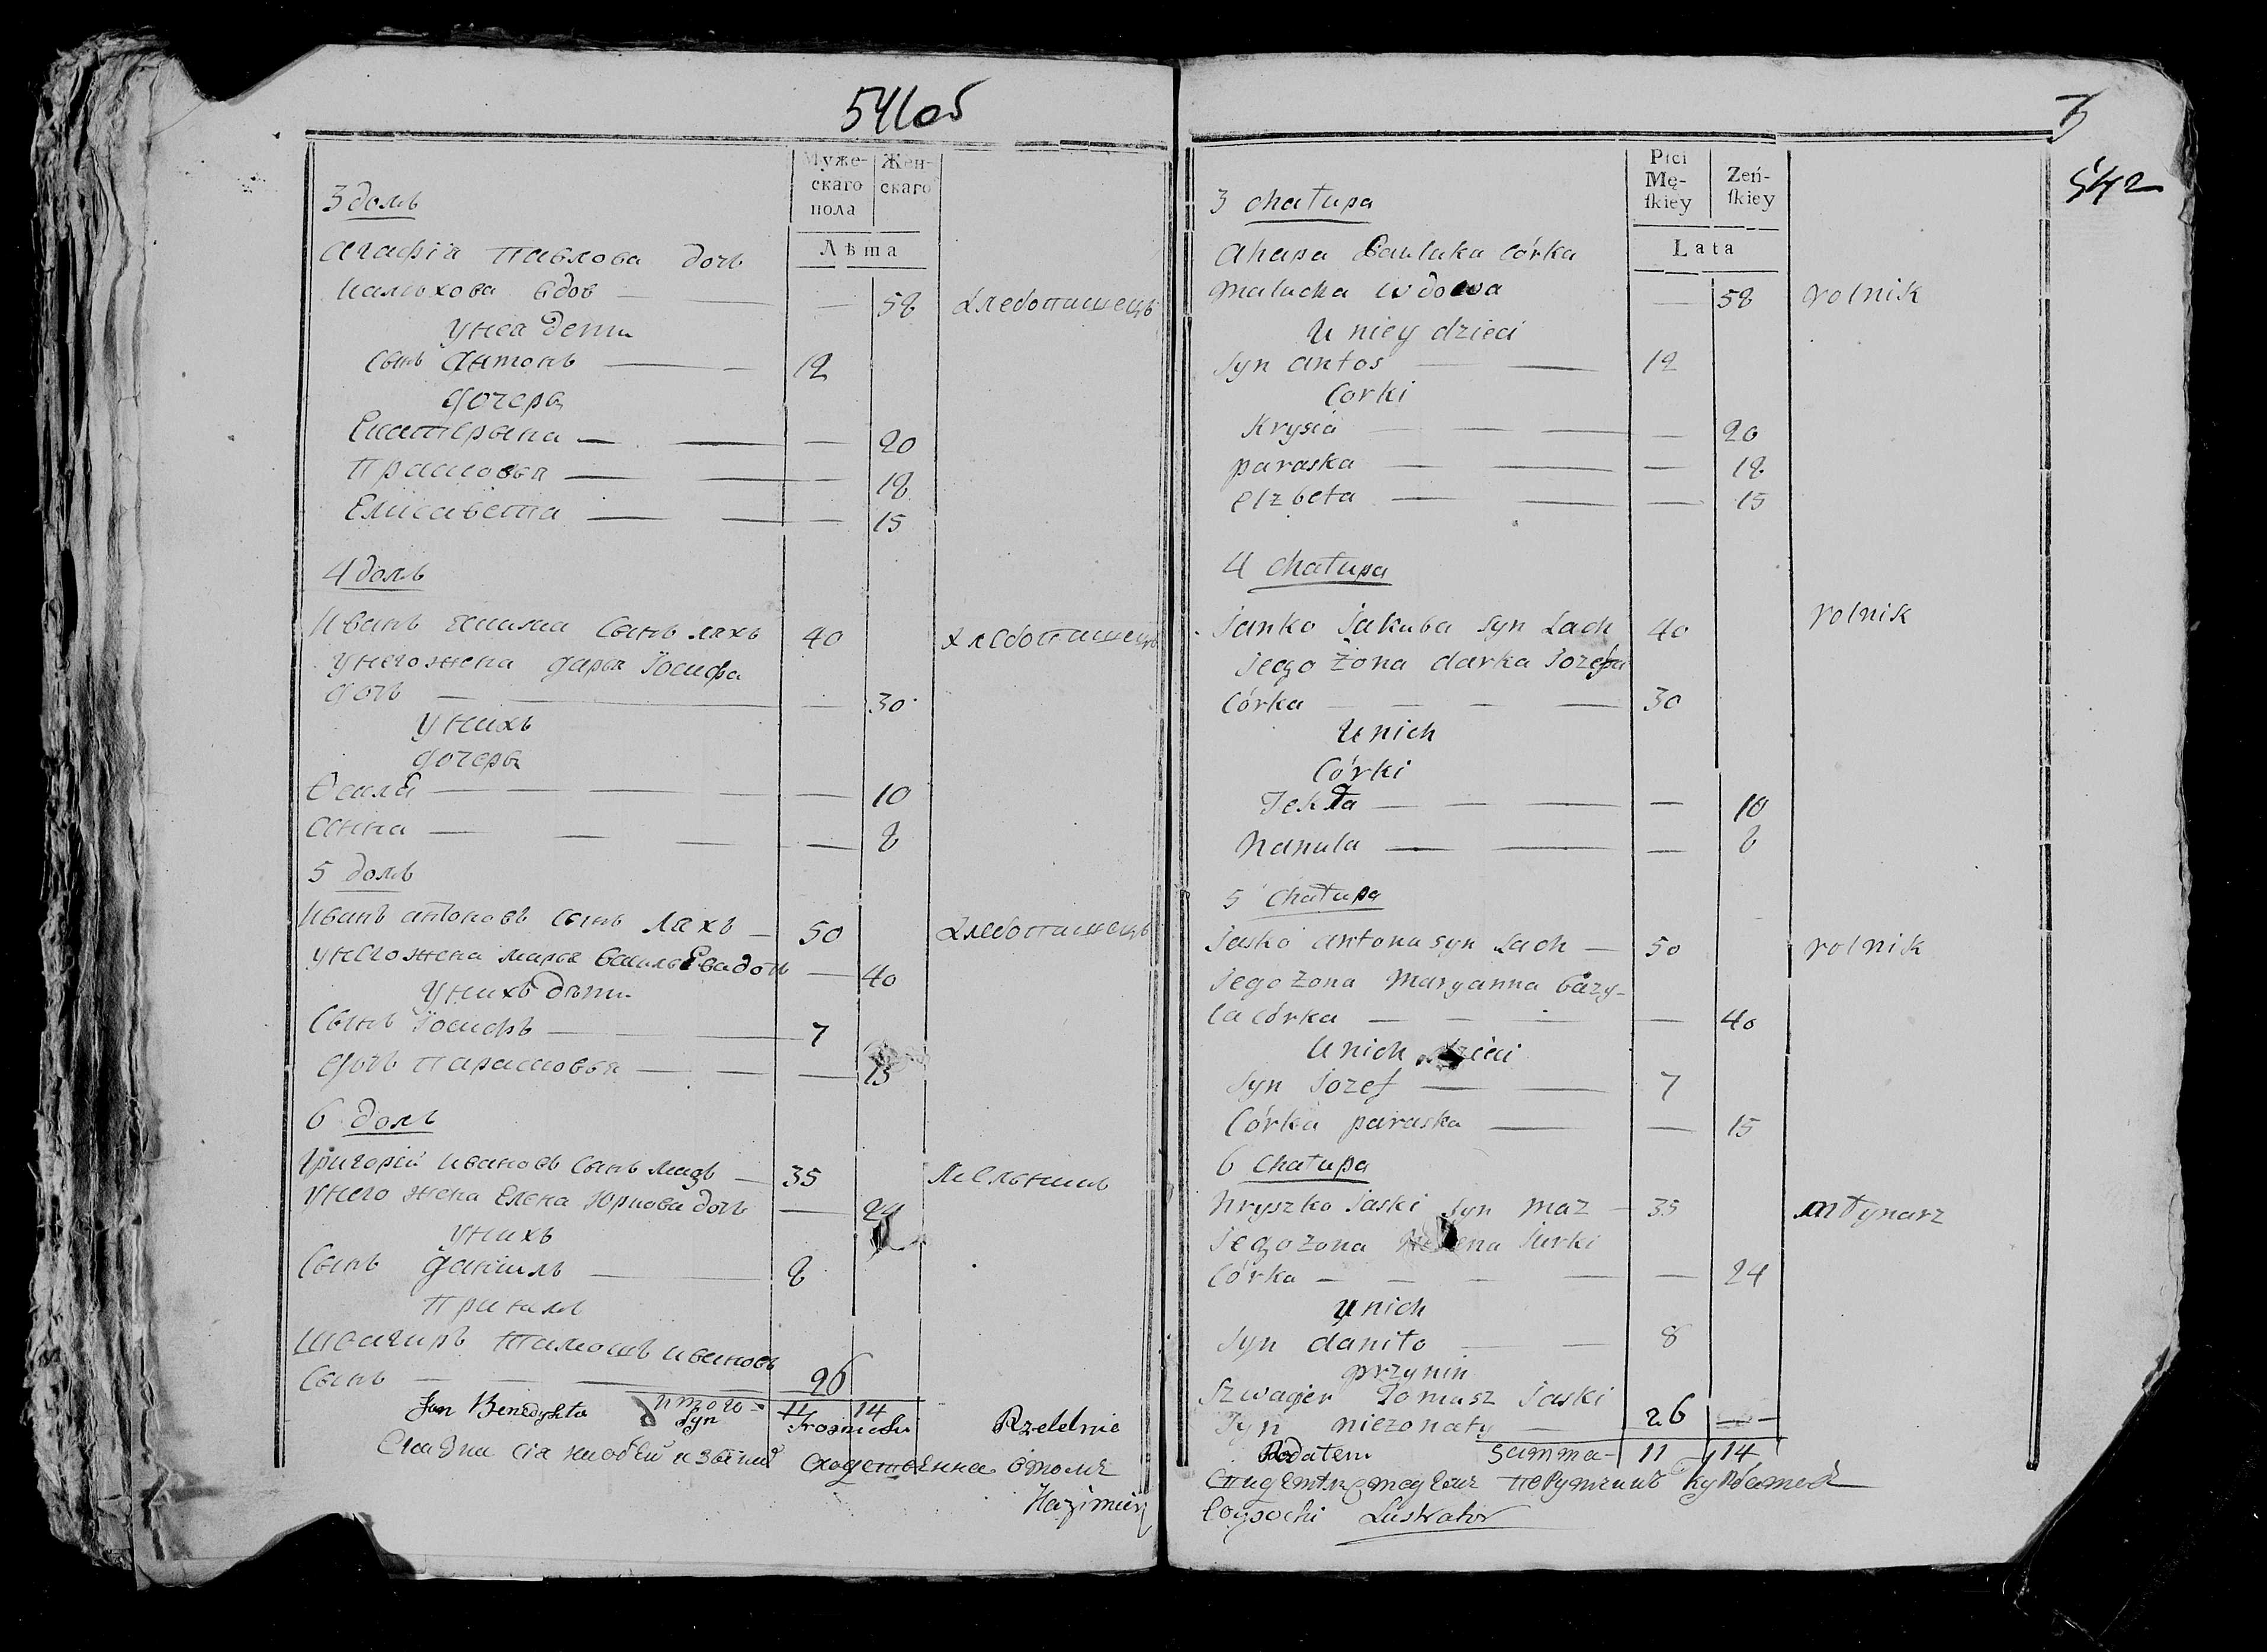 541 об
Муже-
скаго
пола
Жен-
скаго
Лѣта
3 домъ
Агафія Павлова дочь
вдов — — 58 хлебопашецъ
У нея дети
Сынъ Антонъ — — 12
Дочери
Екатерына — — — 20
Прасковья — — — 18
Елисавета — — — 15
4 домъ
Иванъ сынъ Ляхъ 40 хлебопашецъ
У него жена Дарья Іосифа
дочь — — — 30
У нихъ
дочери
— — — — — 10
Анна — — — — 8
5 домъ
Иванъ Антоновъ сынъ Ляхъ — 50 хлебопашецъ
У него жена Марья Васильева дочь — 40
У нихъ дѣти
Сынъ Іосифъ — — 7
Дочь Парасковья — — — 15
6 домъ
Григорій Ивановъ сынъ — 35 Мельникъ
У него жена Елена Юркова дочь — 24
У нихъ
Сынъ Данилъ — 8
При немъ
Швагиръ Тамошъ Ивановъ
Сынъ — — — 26
Итого — 11 14
Jan Benedykta Syn Rzetelnie
Kazimierz
3
542
Płci
Mę-
ſkiey
Żeń-
ſkiey
Lata
3 chałupa
Ahapa Pauluka córka
Malucha wdowa — 58 rolnik
U niey dzieci
Syn Antos — — 12
Corki
Krysia — — — — 20
paraska — — — 18
elzbeta — — — 15
4 chałupa
Janko Jakuba syn Lach 40 rolnik
Jego Zona darka Jozefa
Córka — — — — 30
U nich
Córki
Tekla — — — — 10
Hanula — — — 8
5 chałupa
Jasko antona syn Lach — 50 rolnik
Jego zona Maryanna bazy-
la córka — — — — — 40
U nich dzieci
Syn Jozef — — 7
Córka paraska — — 15
6 chałupa
hryszko Jaski syn maz — 35 młynarz
Jego zona Helena Jurki
Córka — — — — — 24
U nich
Syn daniło — — 8
przynin
Szwagier Tomasz Jaski
Syn niezonaty — 26 —
Podałem Summa — 11 14
Lustrator